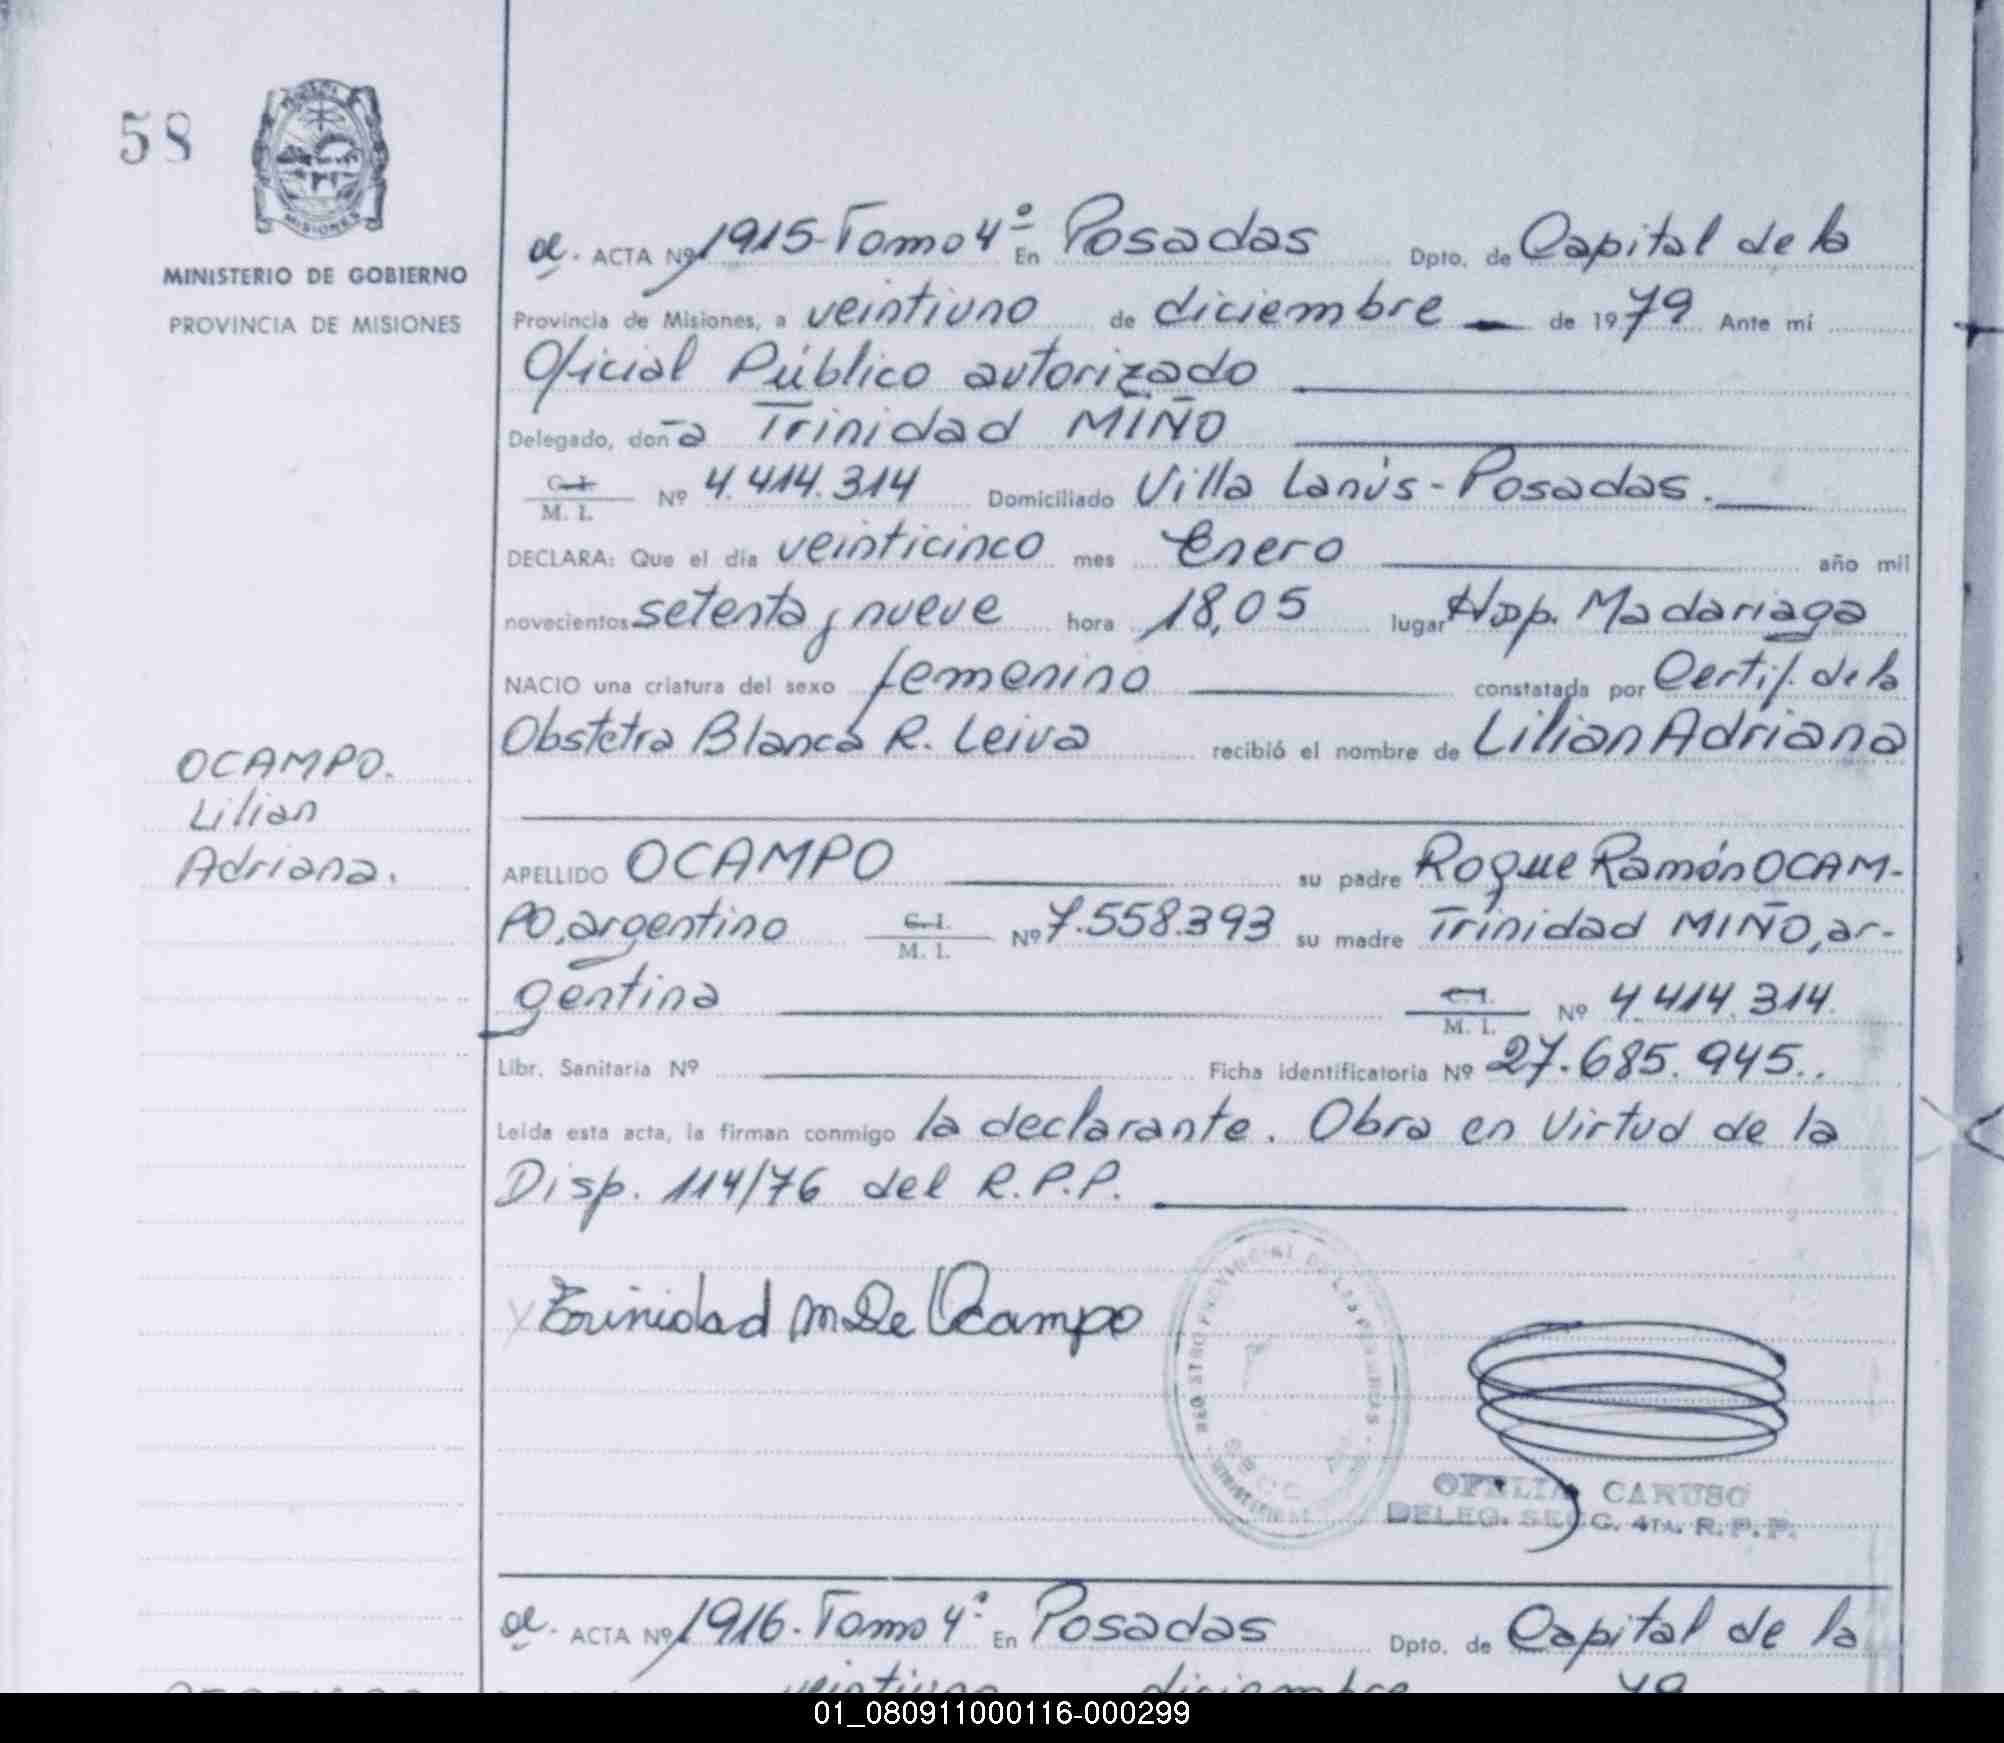 58
MISIONES
MINISTERIO DE GOBIERNO
PROVINCIA DE MISIONES
OCAMPO.
Lilian
Adriana.
a. ACTA Nº 1915-Tomo 4º En Posadas Dpto. de Capital de la
Provincia de Misiones, a veintiuno de diciembre de 1979 Ante mí
Oficial Público autorizado
Delegado, doña Trinidad MIÑO
C. I.
M. I. Nº 4.414.314 Domiciliado Villa Lanús - Posadas.
DECLARA: Que el día veinticinco mes Enero año mil
novecientos setenta y nueve hora 18,05 lugar Hosp. Madariaga
NACIO una criatura del sexo femenino constatada por Certif. de la
Obstetra Blanca R. Leiva recibió el nombre de Lilian Adriana
APELLIDO OCAMPO su padre Roque Ramón OCAM-
PO, argentino C. I. M. I. Nº 7.558.393 su madre Trinidad MIÑO, ar-
gentina C. I. M. I. Nº 4.414.314.
Libr. Sanitaria Nº Ficha identificatoria Nº 27.685.945..
Leída esta acta, la firman conmigo la declarante. Obra en virtud de la
Disp. 114/76 del R.P.P.
x Trinidad M De Ocampo
OFELIA CARUSO
DELEG. SECC. 4TA. R. P. P.
a. ACTA Nº 1916. Tomo 4º En Posadas Dpto. de Capital de la
veintiuno diciembre 79
01_080911000116-000299